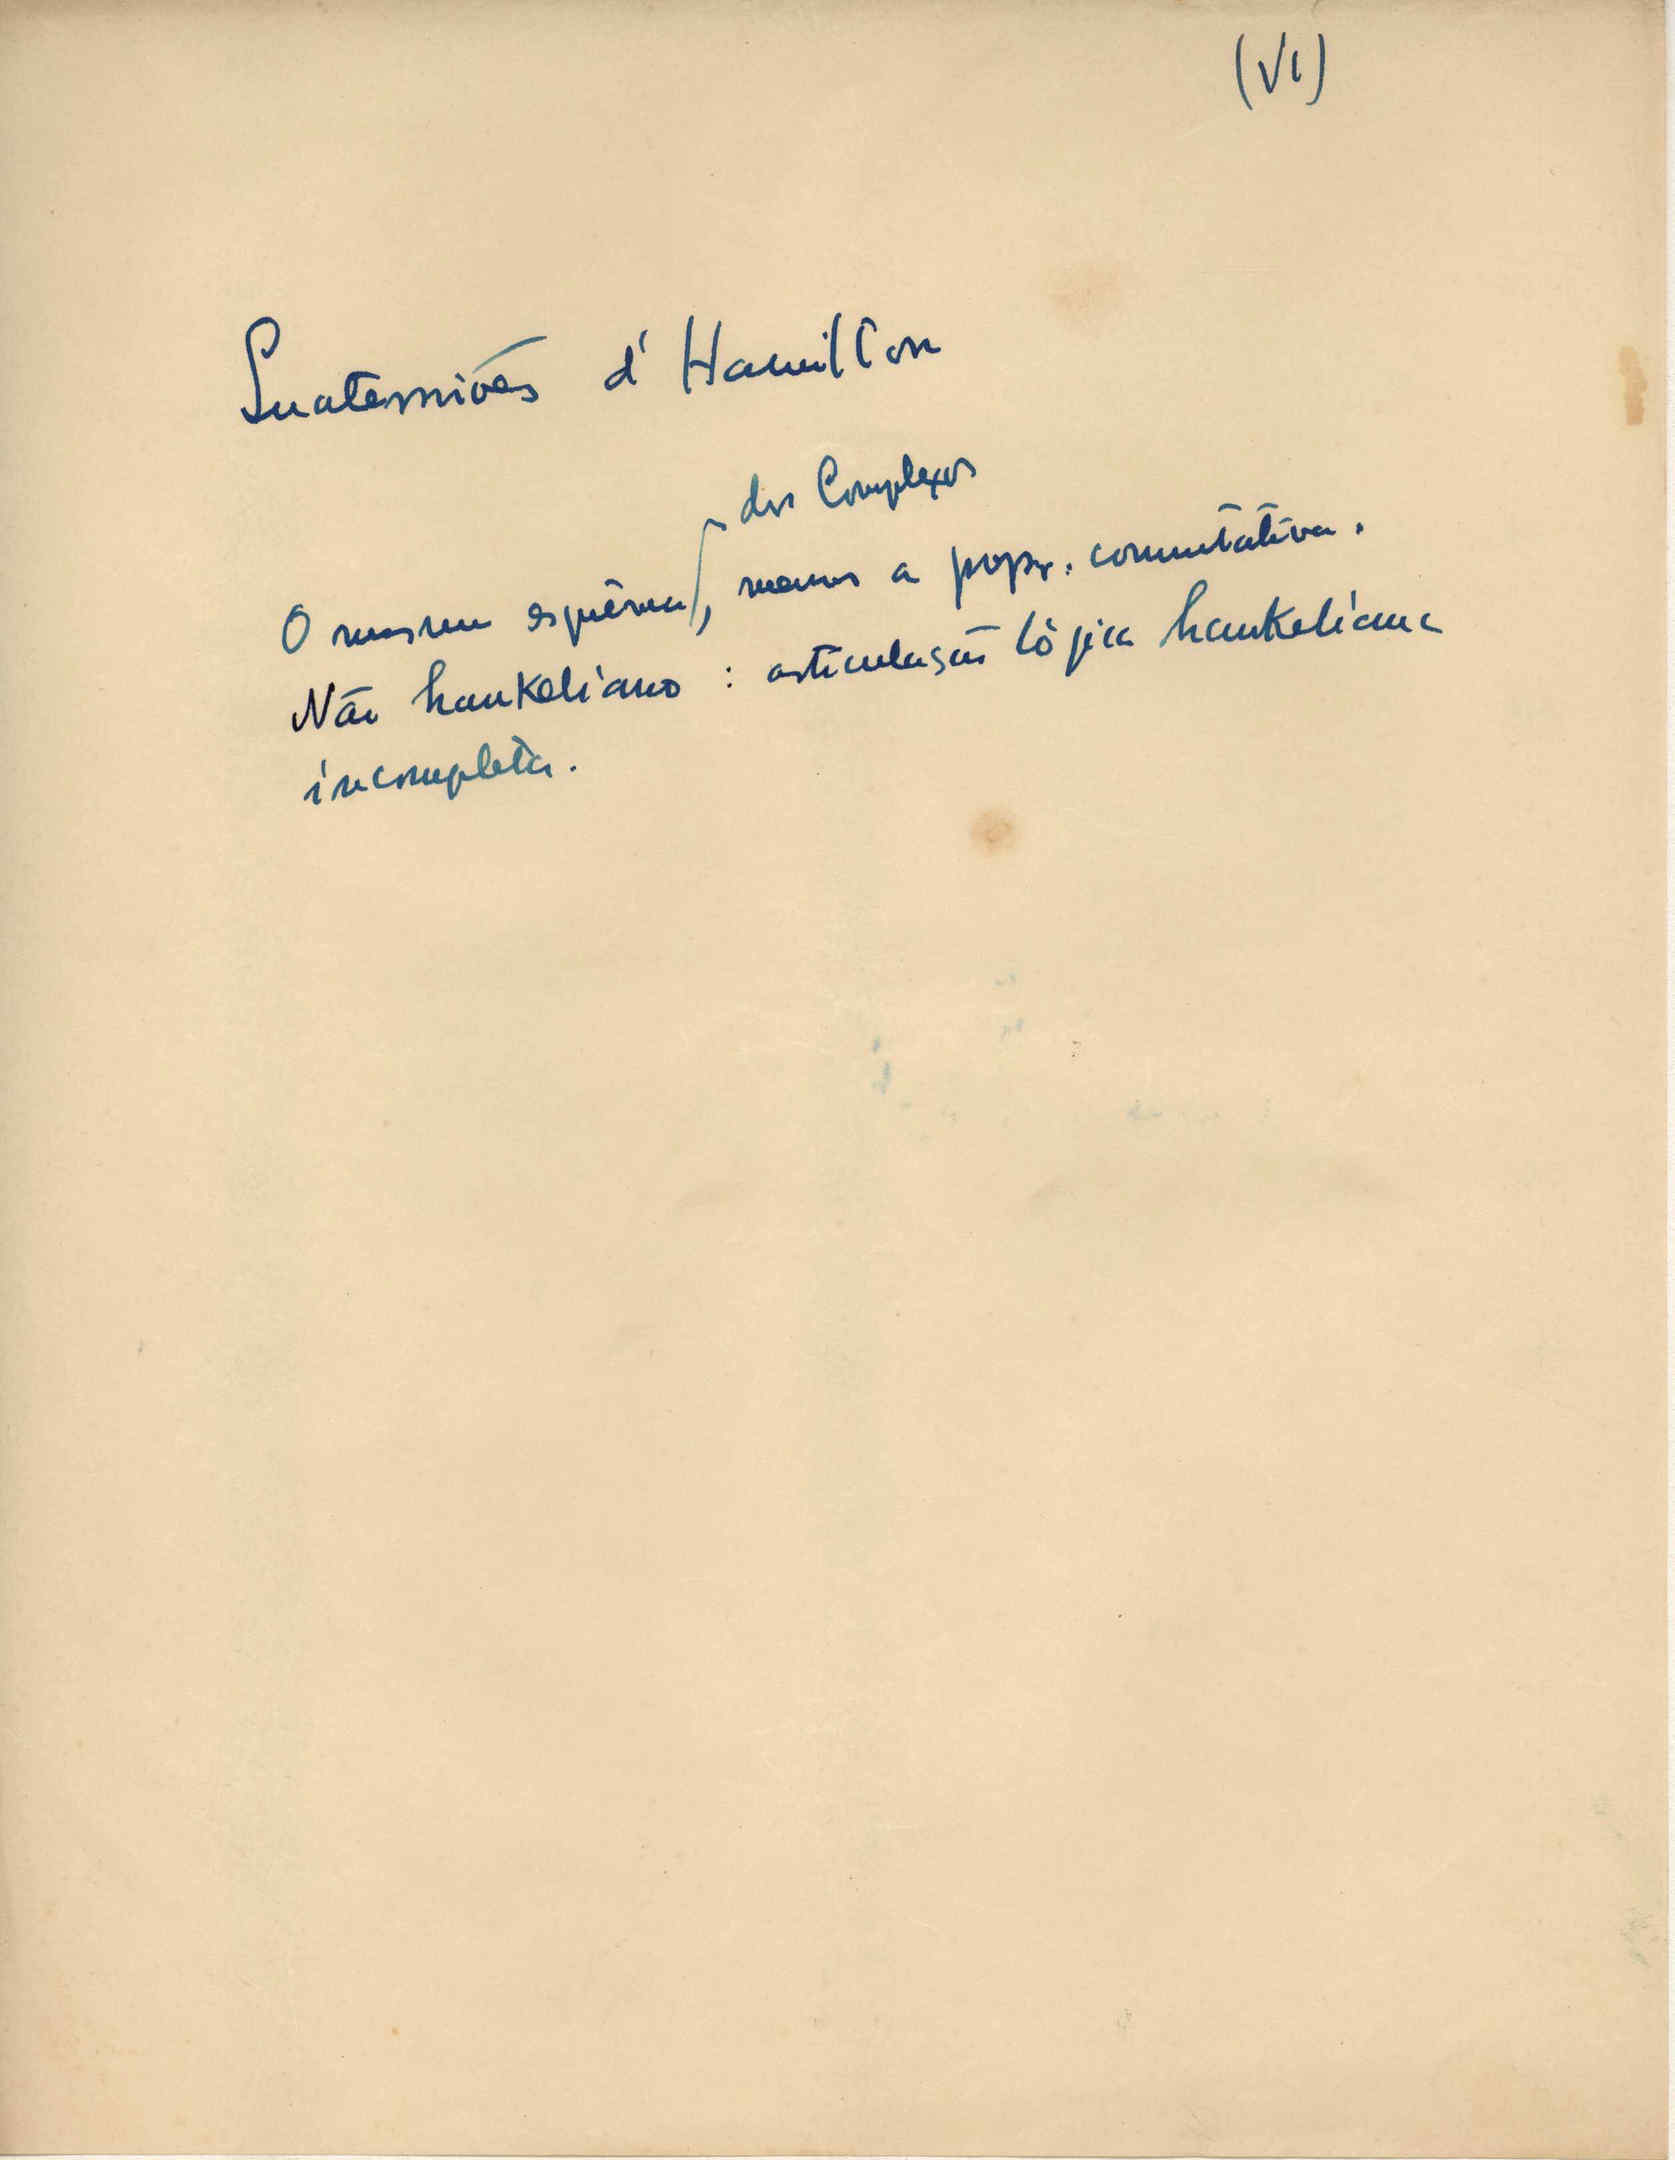 (VI)
Quaterniões d'Hamilton
dos Complexos
O mesmo esquêma, menos a propr. comutativa.
Não hankeliano : articulação lógica hankeliana
incompleta.